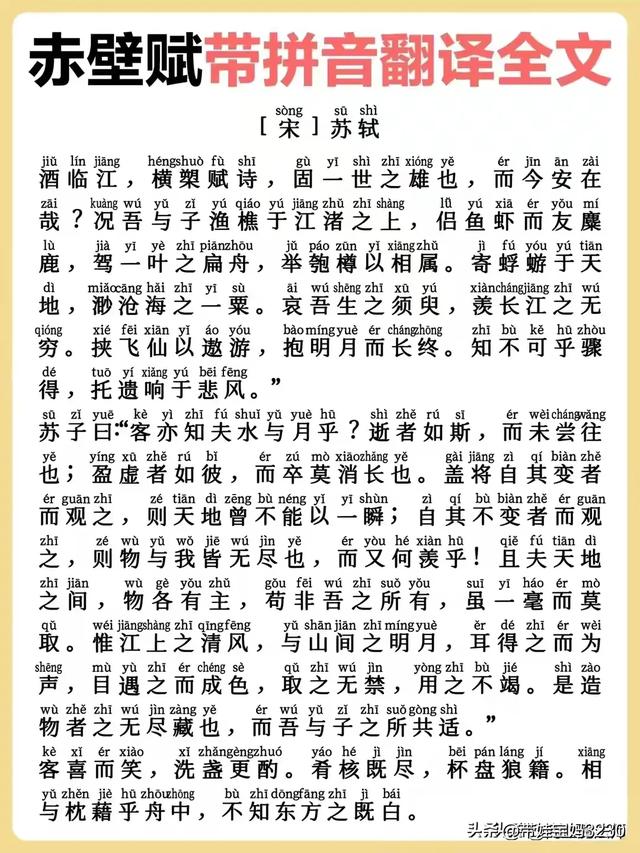 赤壁赋带拼音翻译全文
sòng sū shì
[宋]苏轼
jiǔ lín jiāng héngshuò fù shī gù yī shì zhī xióng yě ér jīn ān zài
酒临江，横槊赋诗，固一世之雄也，而今安在
zāi kuàng wú yǔ zǐ yú qiáo yú jiāng zhǔ zhī shàng lǚ yú xiā ér yǒu mí
哉？况吾与子渔樵于江渚之上，侣鱼虾而友麋
lù jià yī yè zhī piānzhōu jǔ páo zūn yǐ xiāngzhǔ jì fú yóu yú tiān
鹿，驾一叶之扁舟，举匏樽以相属。寄蜉蝣于天
dì miǎocāng hǎi zhī yī sù āi wú shēng zhī xū yú xiànchángjiāng zhī wú
地，渺沧海之一粟。哀吾生之须臾，羡长江之无
qióng xié fēi xiān yǐ áo yóu bào míng yuè ér chángzhōng zhī bù kě hū zhòu
穷。挟飞仙以遨游，抱明月而长终。知不可乎骤
dé tuō yí xiǎng yú bēi fēng
得，托遗响于悲风。”
sū zǐ yuē kè yì zhī fú shuǐ yǔ yuè hū shì zhě rú sī ér wèi chángwǎng
苏子曰：“客亦知夫水与月乎？逝者如斯，而未尝往
yě yíng xū zhě rú bǐ ér zú mò xiāozhǎng yě gài jiāng zì qí biàn zhě
也；盈虚者如彼，而卒莫消长也。盖将自其变者
ér guān zhī zé tiān dì zēng bù néng yǐ yī shùn zì qí bù biàn zhě ér guān
而观之，则天地曾不能以一瞬；自其不变者而观
zhī zé wù yǔ wǒ jiē wú jìn yě ér yòu hé xiàn hū qiě fū tiān dì
之，则物与我皆无尽也，而又何羡乎！且夫天地
zhī jiān wù gè yǒu zhǔ gǒu fēi wú zhī suǒ yǒu suī yī háo ér mò
之间，物各有主，苟非吾之所有，虽一毫而莫
qǔ wéi jiāngshàng zhī qīng fēng yǔ shān jiān zhī míng yuè ěr dé zhī ér wèi
取。惟江上之清风，与山间之明月，耳得之而为
shēng mù yù zhī ér chéng sè qǔ zhī wú jìn yòng zhī bù jié shì zào
声，目遇之而成色，取之无禁，用之不竭。是造
wù zhě zhī wú jìn zàng yě ér wú yǔ zǐ zhī suǒ gòng shì
物者之无尽藏也，而吾与子之所共适。”
kè xǐ ér xiào xǐ zhǎngèngzhuó yáo hé jì jìn bēi pán láng jí xiāng
客喜而笑，洗盏更酌。肴核既尽，杯盘狼籍。相
yǔ zhěn jiè hū zhōu zhōng bù zhī dōngfāng zhī jì bái
与枕藉乎舟中，不知东方之既白。
头条@带娃宝妈3230